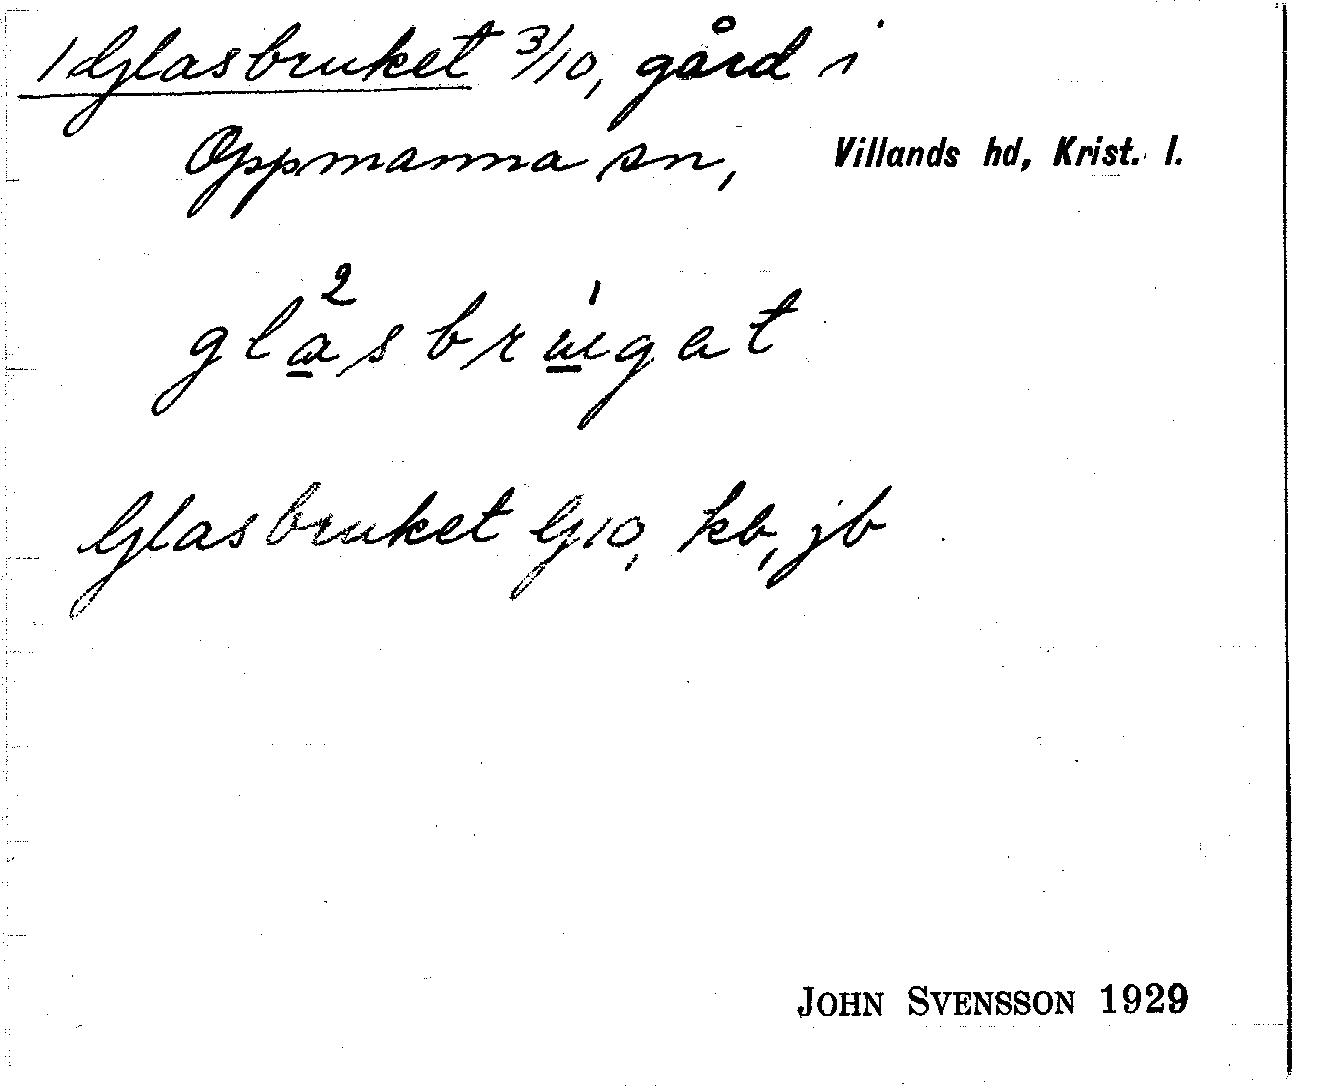 / Glasbruket 3/10, gård i
Oppmanna sn, Villands hd, Krist. l.
Glasbruket G10, kb, jb
JOHN SVENSSON 1929